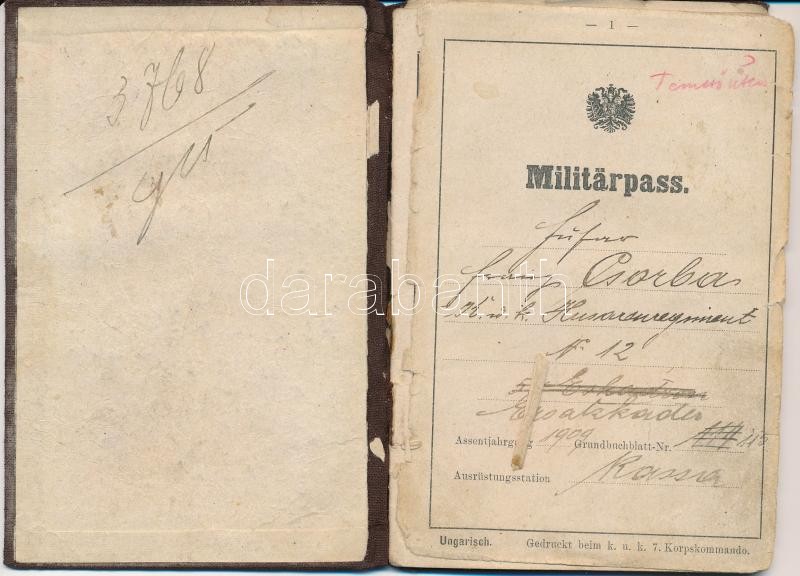 3768
— 1 —
Militärpass.
Husar
Franz Csorba
K. u. k. Husarenregiment
N. 12
Eskadron
Ersatzkader
Assentjahrgang 1909 Grundbuchblatt-Nr.
Ausrüstungsstation Kassa
Ungarisch. Gedruckt beim k. u. k. 7. Korpskommando.
darabanth.com